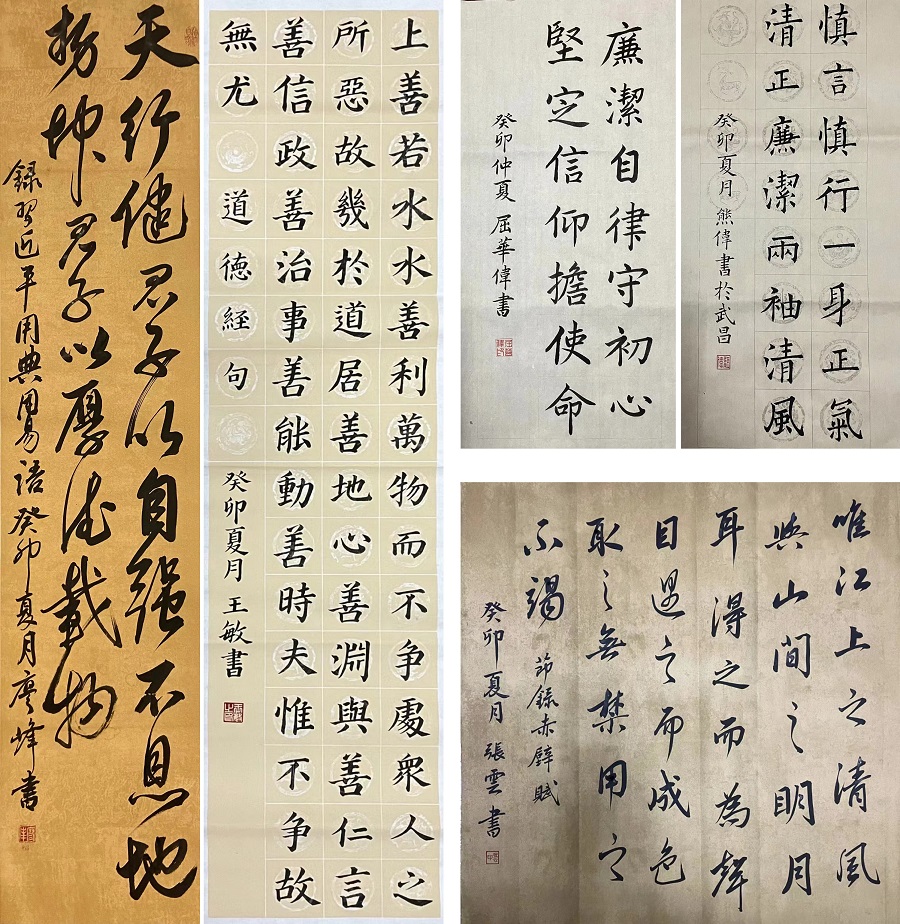 天行健君子以自强不息地
势坤君子以厚德載物
録習近平用典周易语癸卯夏月廖峰書
上善若水水善利萬物而不争處衆人之
所惡故幾於道居善地心善淵與善仁言
善信政善治事善能動善時夫惟不争故
無尤 道德經句
癸卯夏月王敏書
廉潔自律守初心
堅定信仰擔使命
癸卯仲夏屈華偉書
慎言慎行一身正氣
清正廉潔兩袖清風
癸卯夏月熊偉書於武昌
唯江上之清風
與山間之明月
耳得之而為聲
目遇之而成色
取之無禁用之
不竭 節録赤壁賦
癸卯夏月張雲書